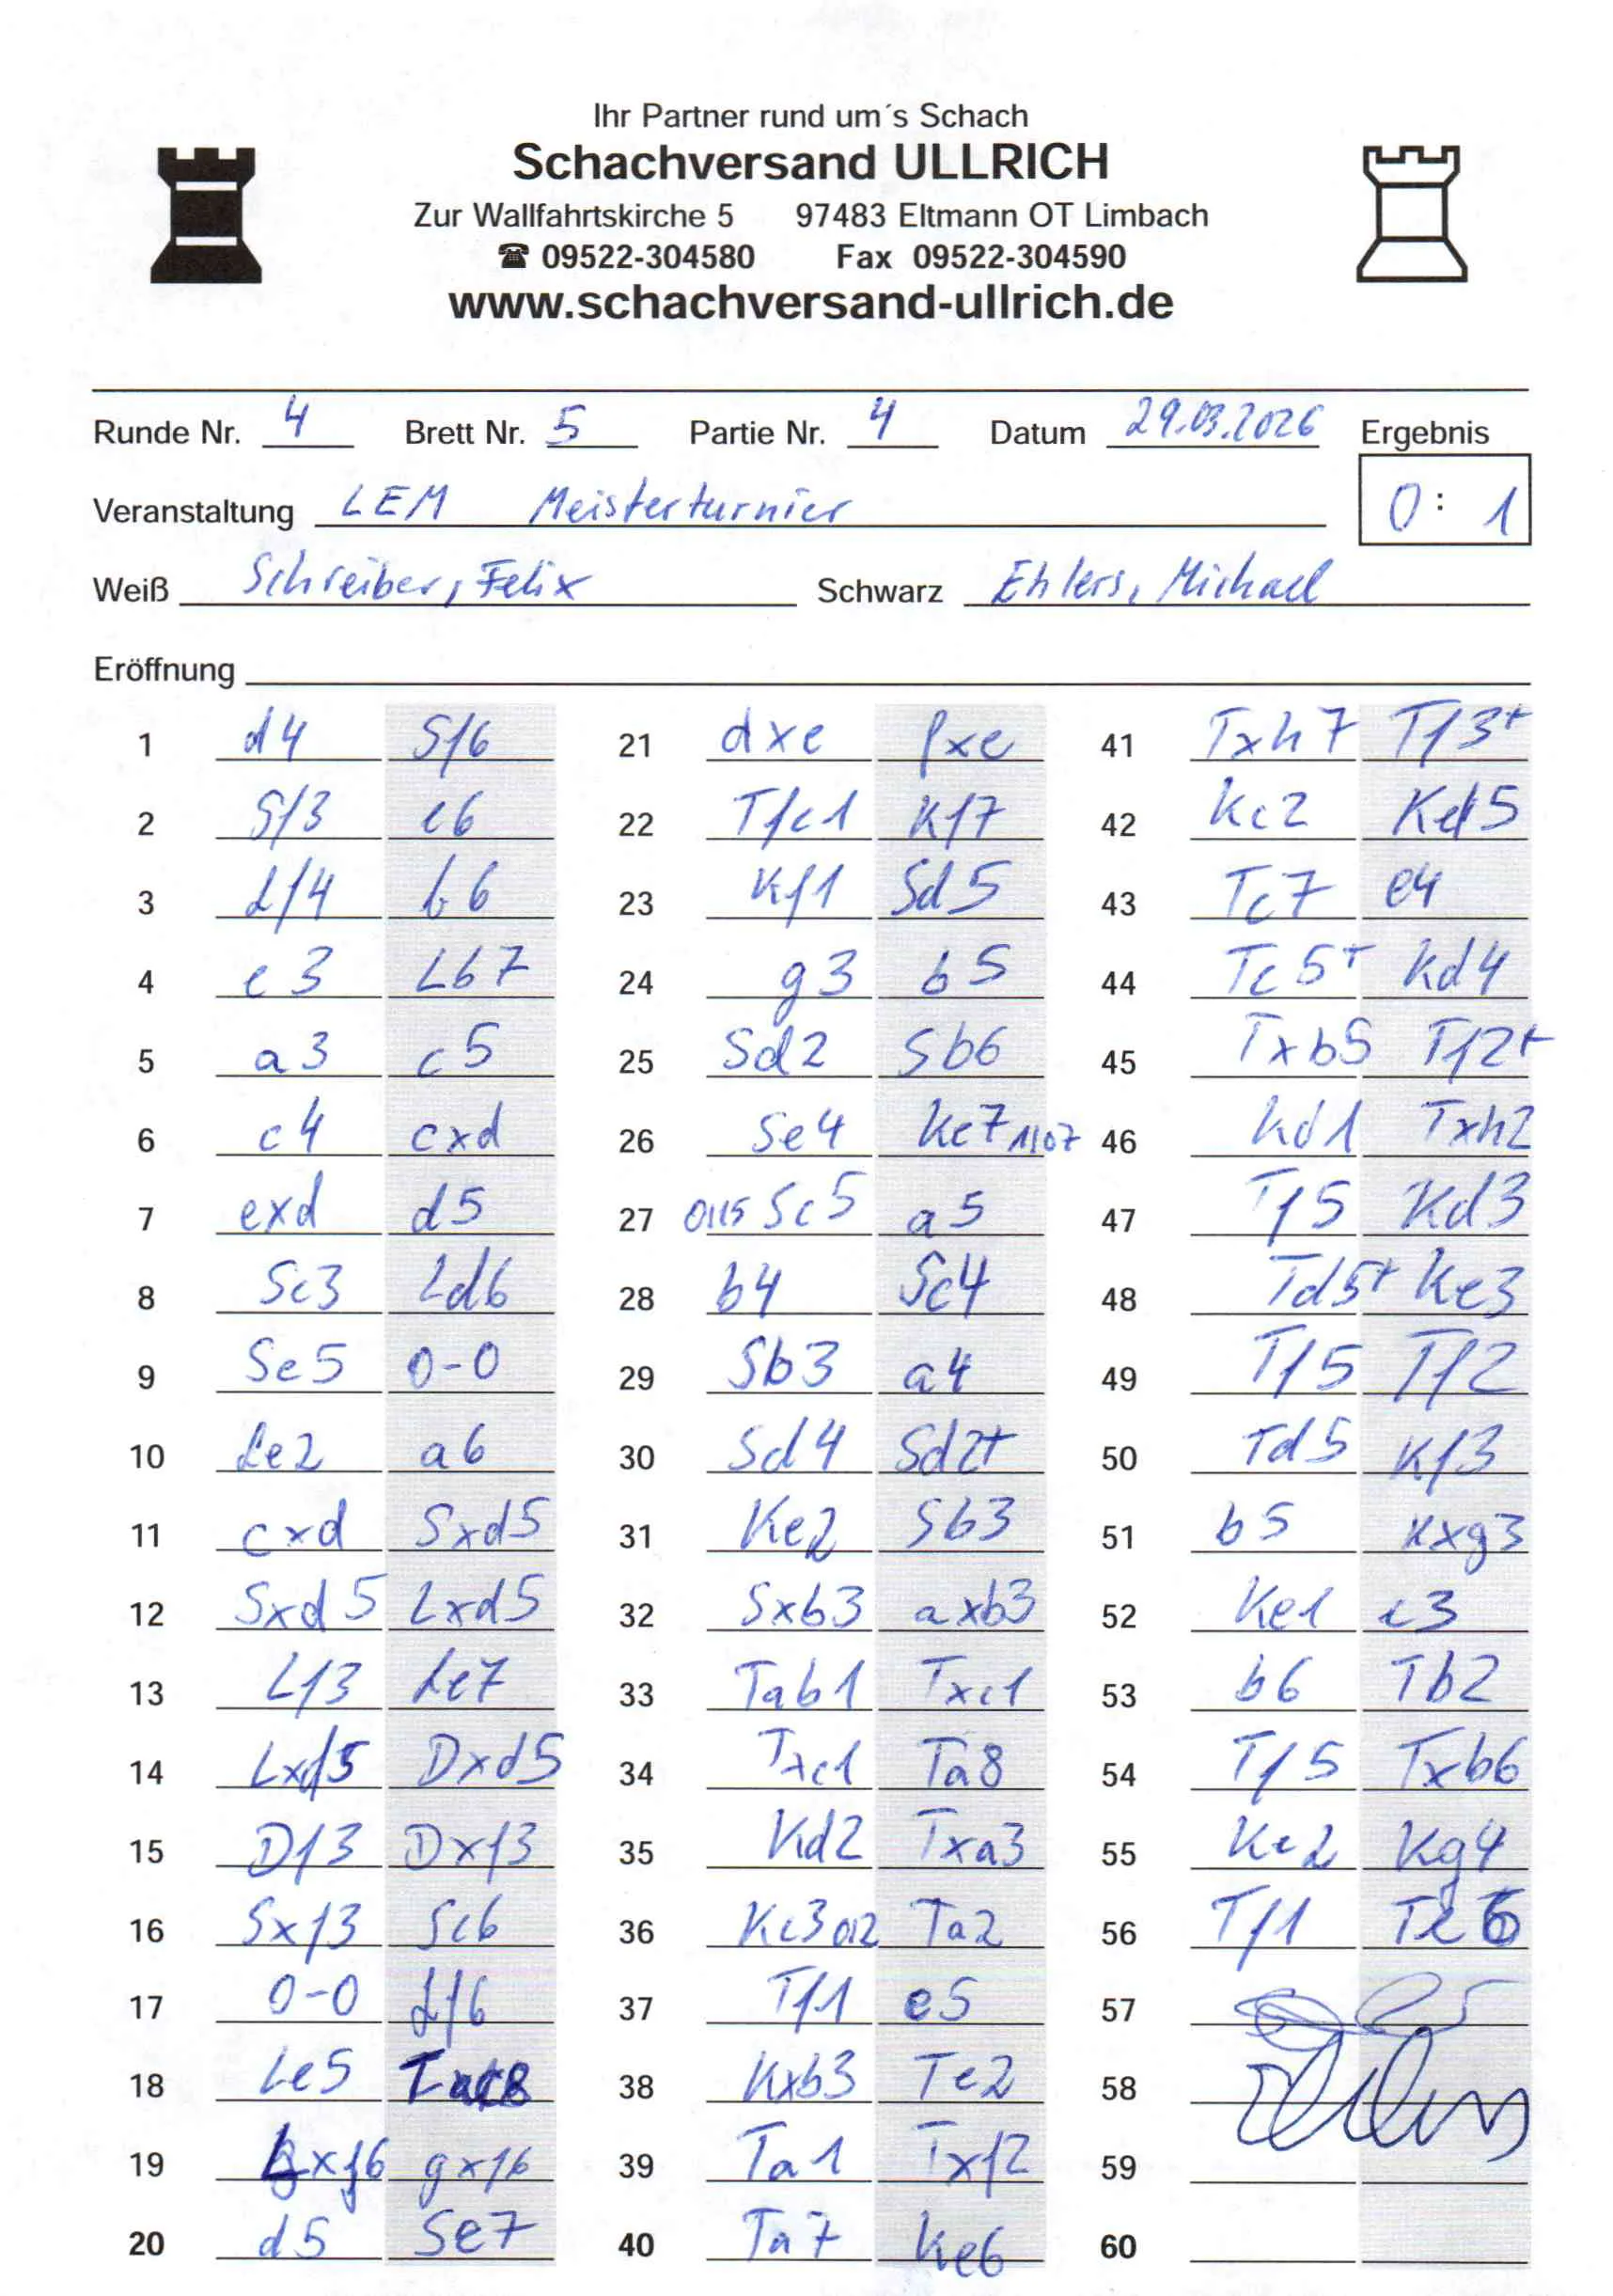 Ihr Partner rund um´s Schach
Schachversand ULLRICH
Zur Wallfahrtskirche 5 97483 Eltmann OT Limbach
☎ 09522-304580 Fax 09522-304590
www.schachversand-ullrich.de
Runde Nr. 4 Brett Nr. 5 Partie Nr. 4 Datum 29.03.2026 Ergebnis
Veranstaltung LEM Meisterturnier 0 : 1
Weiß Schreiber, Felix Schwarz Ehlers, Michael
Eröffnung
1 d4 Sf6 21 dxe fxe 41 Txh7 Tf3+
2 Sf3 e6 22 Tfc1 Kf7 42 Kc2 Kd5
3 Lf4 b6 23 Kf1 Sd5 43 Tc7 e4
4 e3 Lb7 24 g3 b5 44 Tc5+ Kd4
5 a3 c5 25 Sd2 Sb6 45 Txb5 Tf2+
6 c4 cxd 26 Se4 Ke7 1107 46 Kd1 Txh2
7 exd d5 27 0115 Sc5 a5 47 Tf5 Kd3
8 Sc3 Ld6 28 b4 Sc4 48 Td5+ Ke3
9 Se5 0-0 29 Sb3 a4 49 Tf5 Tf2
10 Le2 a6 30 Sd4 Sd2+ 50 Td5 Kf3
11 cxd Sxd5 31 Ke2 Sb3 51 b5 Kxg3
12 Sxd5 Lxd5 32 Sxb3 axb3 52 Ke1 e3
13 Lf3 Le7 33 Tab1 Txc1 53 b6 Tb2
14 Lxd5 Dxd5 34 Txc1 Ta8 54 Tf5 Txb6
15 Df3 Dxf3 35 Kd2 Txa3 55 Ke2 Kg4
16 Sxf3 Sc6 36 Kc3 012 Ta2 56 Tf1
17 0-0 Lf6 37 Tf1 e5 57
18 Le5 38 Kxb3 Te2 58
19 Lxf6 gxf6 39 Ta1 Txf2 59
20 d5 Se7 40 Ta7 Ke6 60